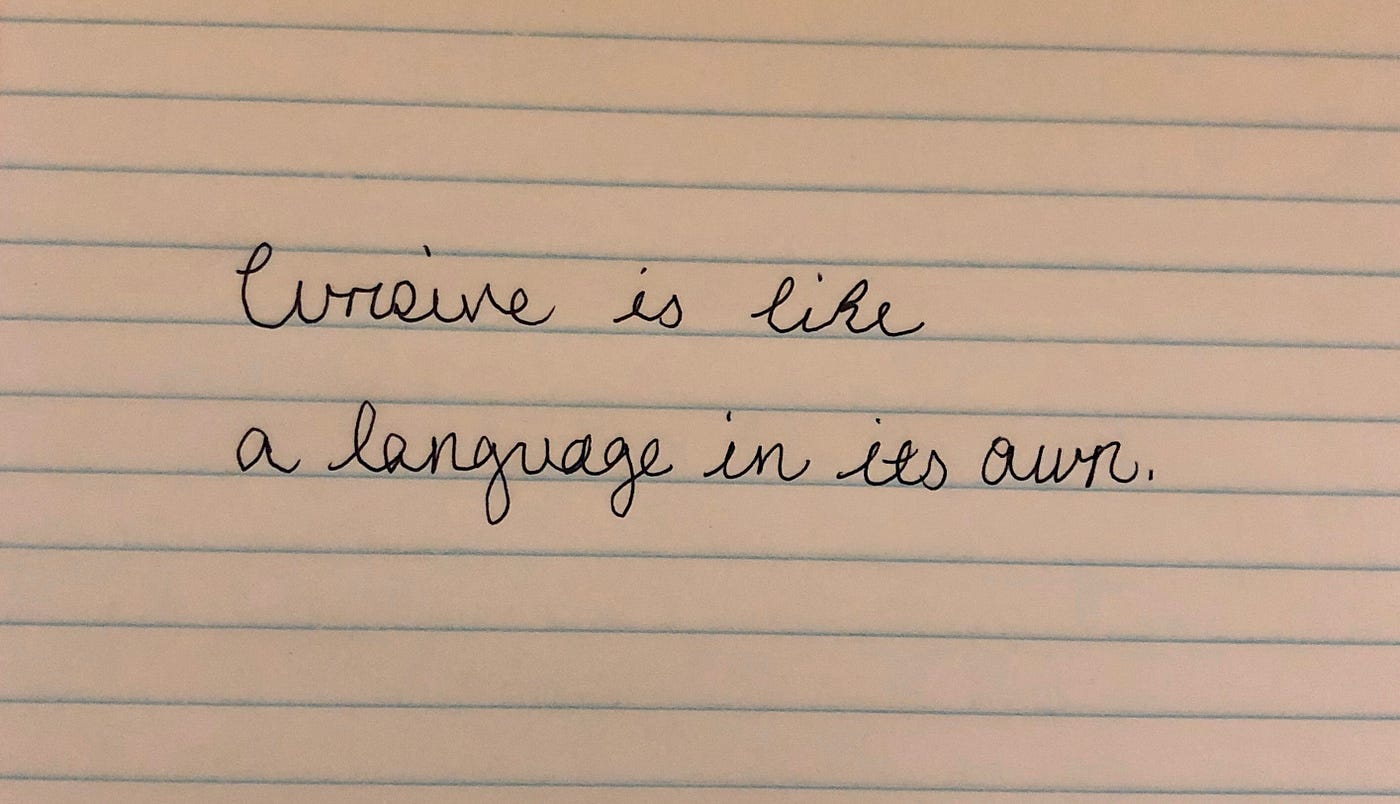 Cursive is like
a language in its own.